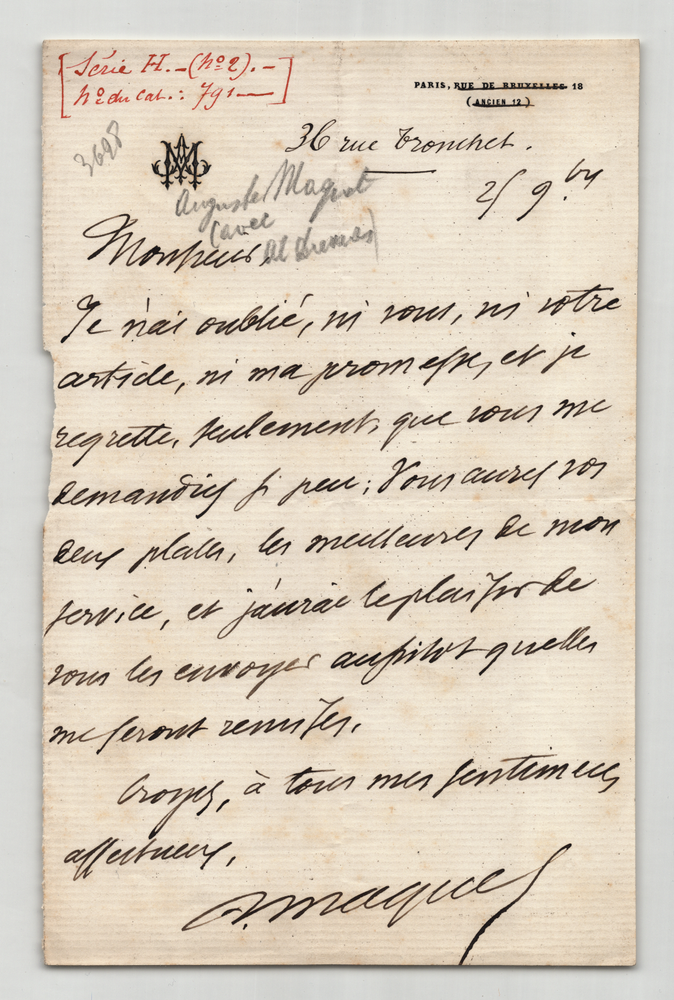 Série H. - (Nº 2). -
Nº du Cat. : 791 -
PARIS, RUE DE BRUXELLES 18
(ANCIEN 12)
3698
AM
36 rue Tronchet.
25 9.bre
Auguste Maquet
(avec
Al Dumas)
Monsieur,
Je n'ai oublié, ni vous, ni votre
article, ni ma promesse, et je
regrette, seulement, que vous me
demandiez si peu ; Vous aurez vos
deux places, les meilleures de mon
service, et j'aurai le plaisir de
vous les envoyer aussitot quelles
me seront remises.
Croyez, à tous mes sentimens
affectueux,
A. Maquet